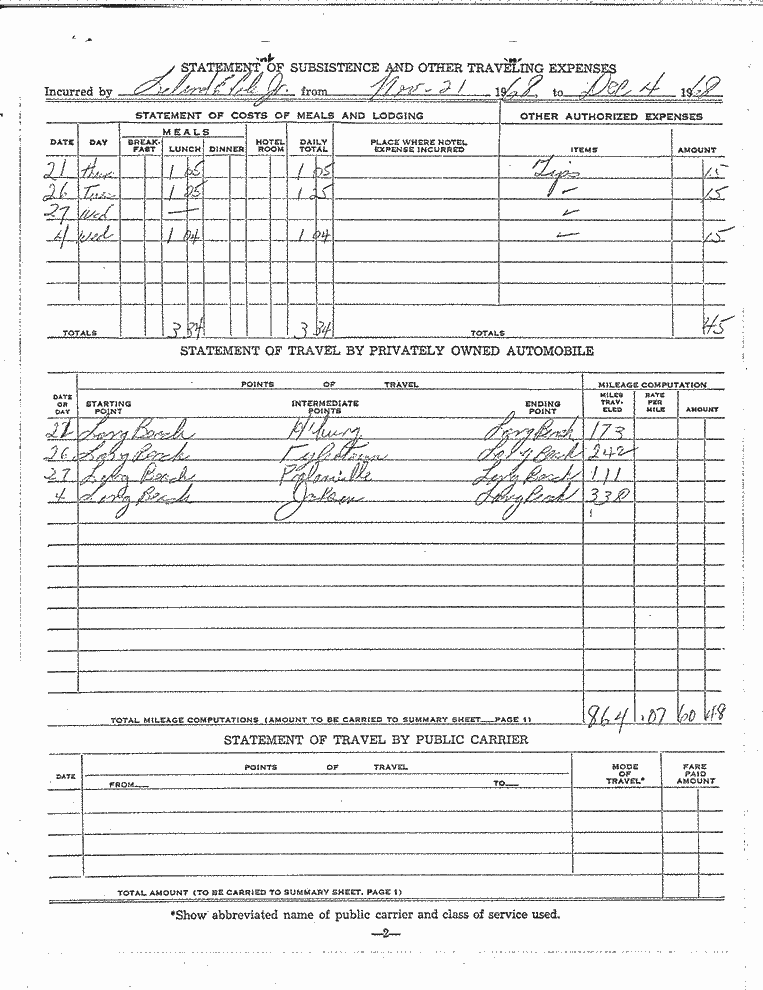 STATEMENT OF SUBSISTENCE AND OTHER TRAVELING EXPENSES
Incurred by Jr. from Nov-21 1968 to Dec 4 1968
STATEMENT OF COSTS OF MEALS AND LODGING OTHER AUTHORIZED EXPENSES
MEALS
DATE DAY BREAK-FAST LUNCH DINNER HOTEL ROOM DAILY TOTAL PLACE WHERE HOTEL EXPENSE INCURRED ITEMS AMOUNT
21 Thur 1 05 1 05 Tips 15
26 Tues 1 25 1 25 15
27 Wed —
4 Wed 1 04 1 04 15
TOTALS 3 34 3 34 TOTALS 45
STATEMENT OF TRAVEL BY PRIVATELY OWNED AUTOMOBILE
POINTS OF TRAVEL MILEAGE COMPUTATION
DATE OR DAY STARTING POINT INTERMEDIATE POINTS ENDING POINT MILES TRAV-ELED RATE PER MILE AMOUNT
21 Long Beach H'burg Long Beach 173
26 Long Beach Tylertown Long Beach 242
27 Long Beach Long Beach 111
4 Long Beach Jackson Long Beach 338
TOTAL MILEAGE COMPUTATIONS (AMOUNT TO BE CARRIED TO SUMMARY SHEET—PAGE 1) 864 .07 60 48
STATEMENT OF TRAVEL BY PUBLIC CARRIER
DATE POINTS OF TRAVEL MODE OF TRAVEL* FARE PAID AMOUNT
FROM— TO—
TOTAL AMOUNT (TO BE CARRIED TO SUMMARY SHEET, PAGE 1)
*Show abbreviated name of public carrier and class of service used.
—2—